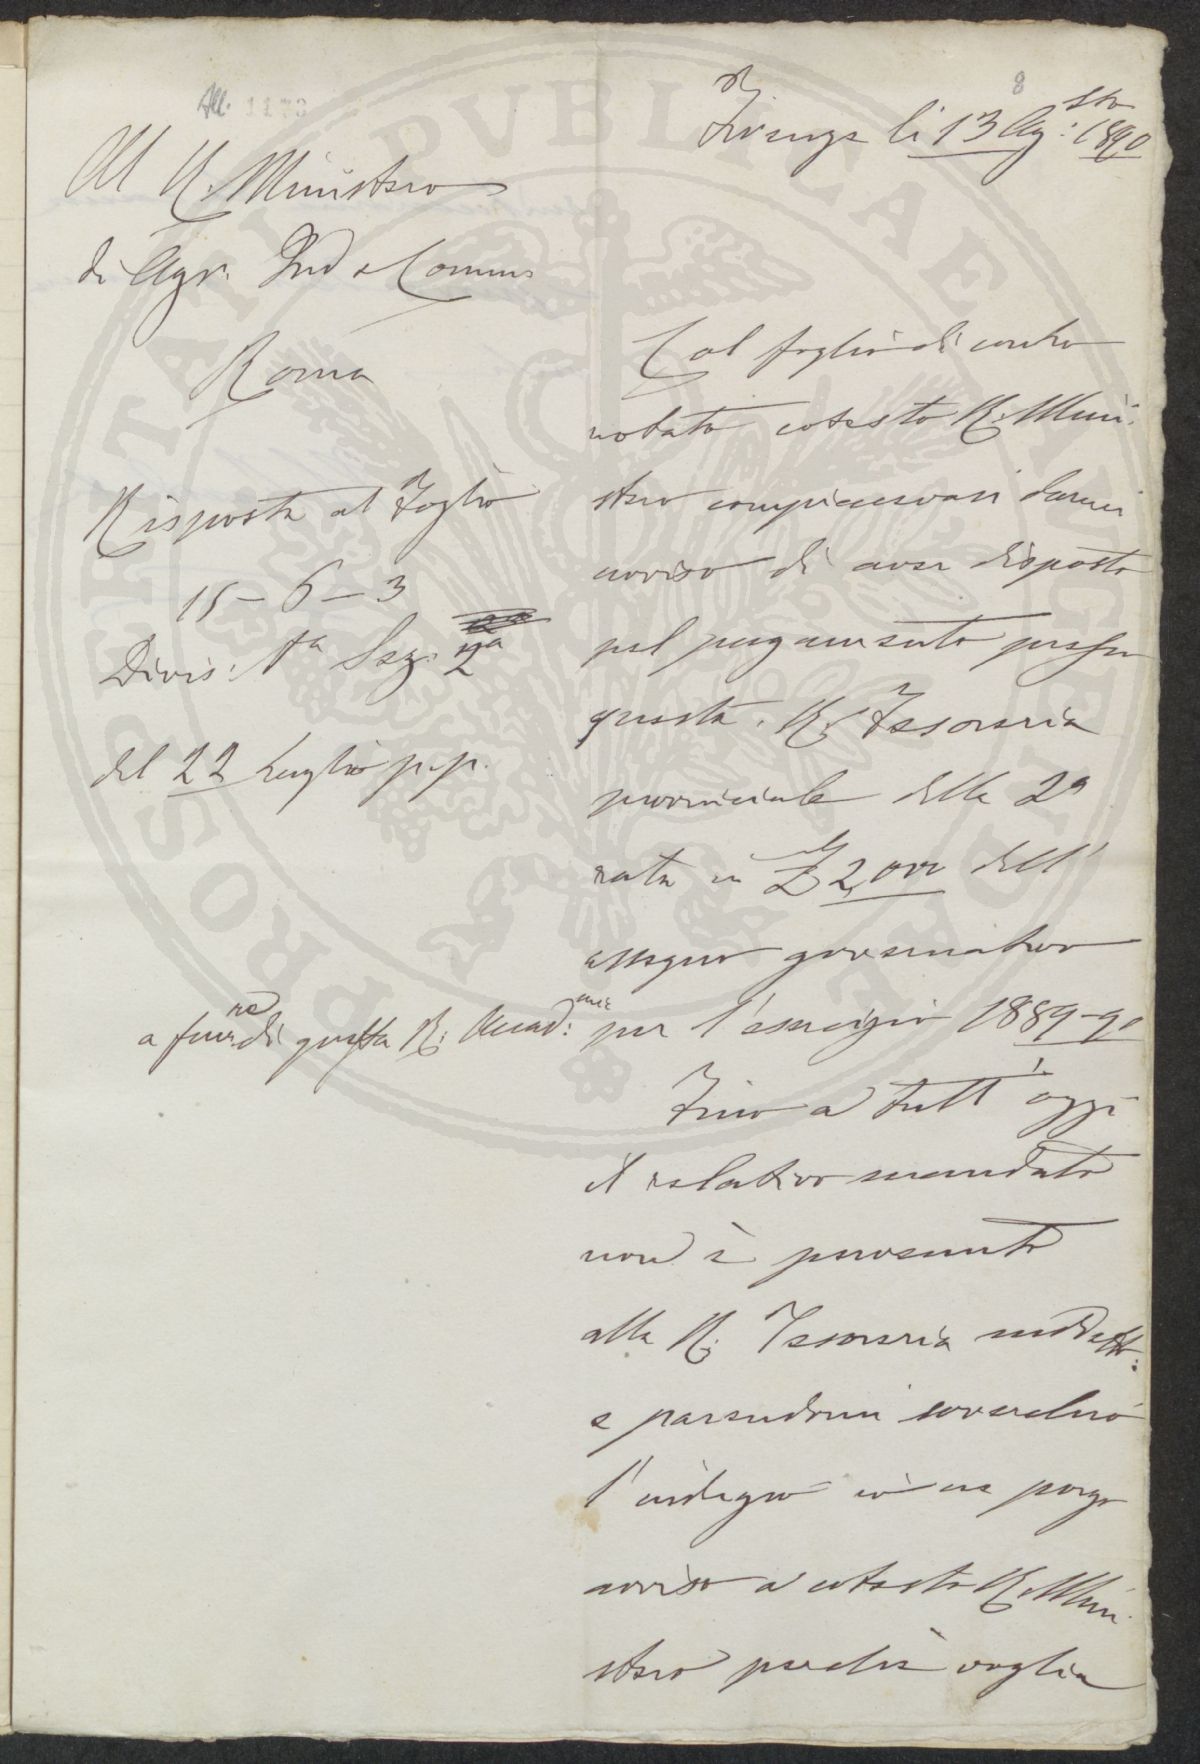 8
All. 1173
Firenze li 13 Ag:sto 1890
Al R. Ministero
di Agr. Ind e Comm°
Roma
Risposta al Foglio
15-6-3
Divis: 1a Sez: 2a
del 22 Luglio p.p.
Col foglio di contro
notato cotesto R. Mini-
stero compiacevasi darmi
avviso di aver disposto
pel pagamento presso
questa R. Tesoreria
provinciale della 2a
rata in £ 2,000 dell'
assegno governativo
a favre di questa R. Accad:mia per l'esercizio 1889-90
Fino a tutt'oggi
il relativo mandato
non è pervenuto
alla R. Tesoreria suddetta:
e parendomi soverchio
l'indugio ne porgo
avviso a cotesto R. Mini-
stero perchè voglia
PROSPERITATI PVBLICAE AVGENDAE